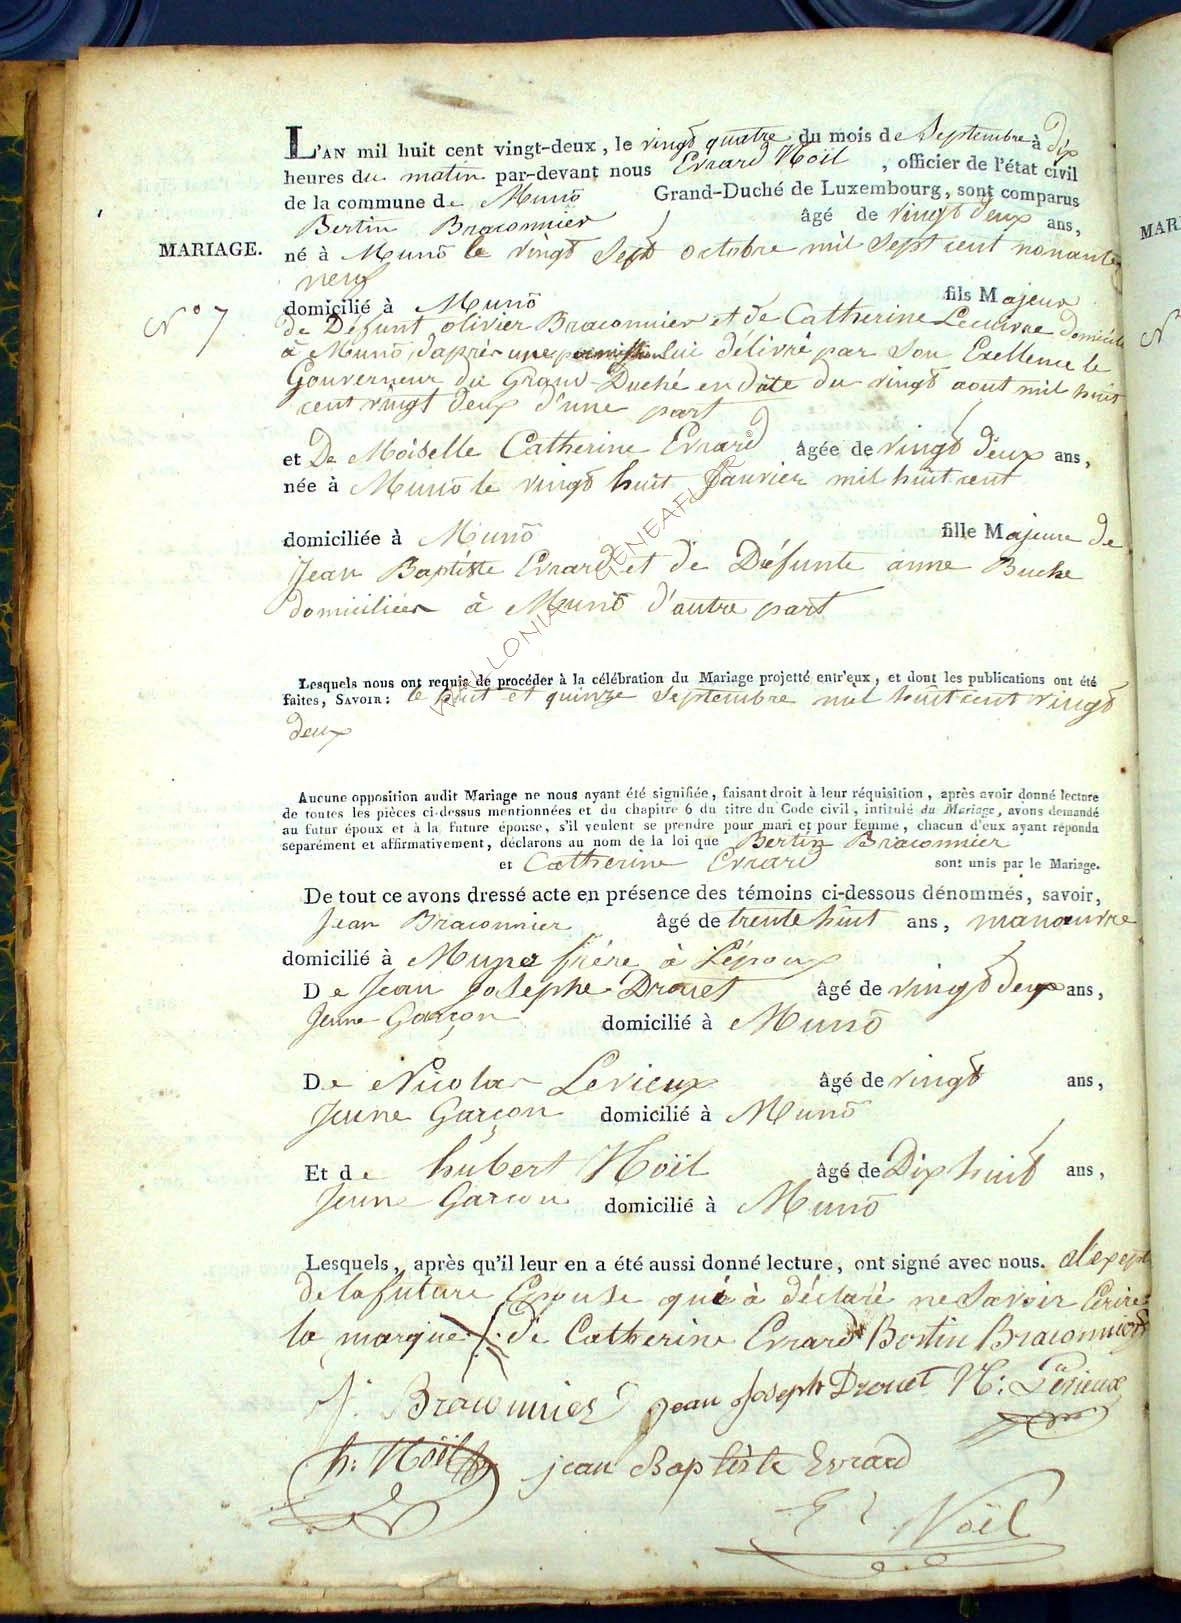 L'AN mil huit cent vingt-deux, le vingt quatre du mois de Septembre à dix
heures du matin par-devant nous Evrard Noël, officier de l'état civil
de la commune de Muno Grand-Duché de Luxembourg, sont comparus
Bertin Braconnier âgé de vingt deux ans,
MARIAGE.
né à Muno le vingt sept octobre mil sept cent nonante
neuf
N° 7
domicilié à Muno fils Majeur
de Défunt olivier Braconnier et de Catherine Lecuivre domicilié
à Muno, d'après une permission lui délivré par Son Exellence le
Gouverneur du Grand-Duché en date du vingt aout mil huit
cent vingt deux d'une part
et De Moiselle Catherine Evrard âgée de vingt deux ans,
née à Muno le vingt huit Janvier mil huit cent
domiciliée à Muno fille Majeure de
Jean Baptiste Evrard et de Défunte anne Buche
domiciliée à Muno d'autre part
Lesquels nous ont requis de procéder à la célébration du Mariage projetté entr'eux, et dont les publications ont été
faites, SAVOIR : le huit et quinze Septembre mil huit cent vingt
deux
Aucune opposition audit Mariage ne nous ayant été signifiée, faisant droit à leur réquisition, après avoir donné lecture
de toutes les pièces ci-dessus mentionnées et du chapitre 6 du titre du Code civil, intitulé du Mariage, avons demandé
au futur époux et à la future épouse, s'il veulent se prendre pour mari et pour femme, chacun d'eux ayant répondu
separément et affirmativement, déclarons au nom de la loi que Bertin Braconnier
et Catherine Evrard sont unis par le Mariage.
De tout ce avons dressé acte en présence des témoins ci-dessous dénommés, savoir,
Jean Braconnier âgé de trente huit ans, manœuvre
domicilié à Muno frére à L'époux
De Jean Josephe Drouet âgé de vingt deux ans,
Jeune Garçon domicilié à Muno
De Nicolas Lerieux âgé de vingt ans,
Jeune Garçon domicilié à Muno
Et de hubert Noël âgé de Dix huit ans,
Jeune Garcon domicilié à Muno
Lesquels, après qu'il leur en a été aussi donné lecture, ont signé avec nous.
de la future Epouse qui à déclaré ne Savoir Ecrire
la marque de Catherine Evrard Bertin Braconnier
J. Braconnier jean Joseph Drouet N: Lerieux
h: Noël jean Baptiste Evrard
Noël
WALLONIA GENEAFLUX
MARI
N°